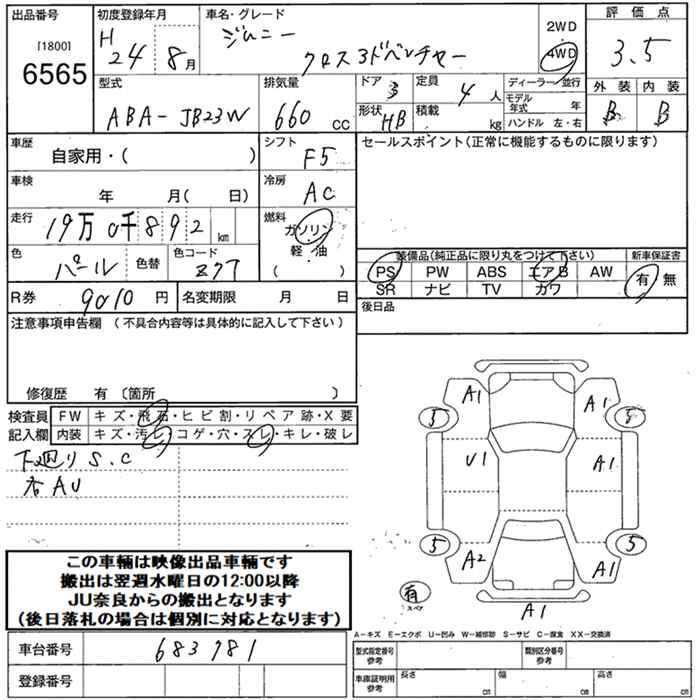 出品番号
[1800]
6565
初度登録年月
H 24 8月
車名・グレード
ジムニー
クロスアドベンチャー
2WD
4WD
評価点
3.5
外装 内装
B B
型式
ABA-JB23W
排気量
660 cc
ドア 3
形状 HB
定員 4人
積載 kg
ディーラー・並行
モデル年式 年
ハンドル 左・右
車歴
自家用・( )
シフト
F5
セールスポイント(正常に機能するものに限ります)
車検
年 月( 日)
冷房
AC
走行
19万0千892 km
燃料
ガソリン
軽・油
( )
色
パール
色替
色コード
Z7T
装備品(純正品に限り丸をつけて下さい)
PS PW ABS エアB AW
SR ナビ TV カワ
新車保証書
有・無
R券 9010 円
名変期限 月 日
後日品
注意事項申告欄 (不具合内容等は具体的に記入して下さい)
修復歴 有 〔箇所 〕
検査員 FW キズ・飛石・ヒビ割・リペア跡・X要
記入欄 内装 キズ・汚レ・コゲ・穴・スレ・キレ・破レ
下廻り S.C
杏 AU
A1 A1
5 5
U1 A1
5 5
A2 A1
有
スペア
A1
この車輛は映像出品車輛です
搬出は翌週水曜日の12:00以降
JU奈良からの搬出となります
(後日落札の場合は個別に対応となります)
A-キズ E-エクボ U-凹み W-補修跡 S-サビ C-腐食 XX-交換済
車台番号 683781
登録番号
型式指定番号 参考
類別区分番号 参考
車庫証明用 参考
長さ cm 幅 cm 高さ cm